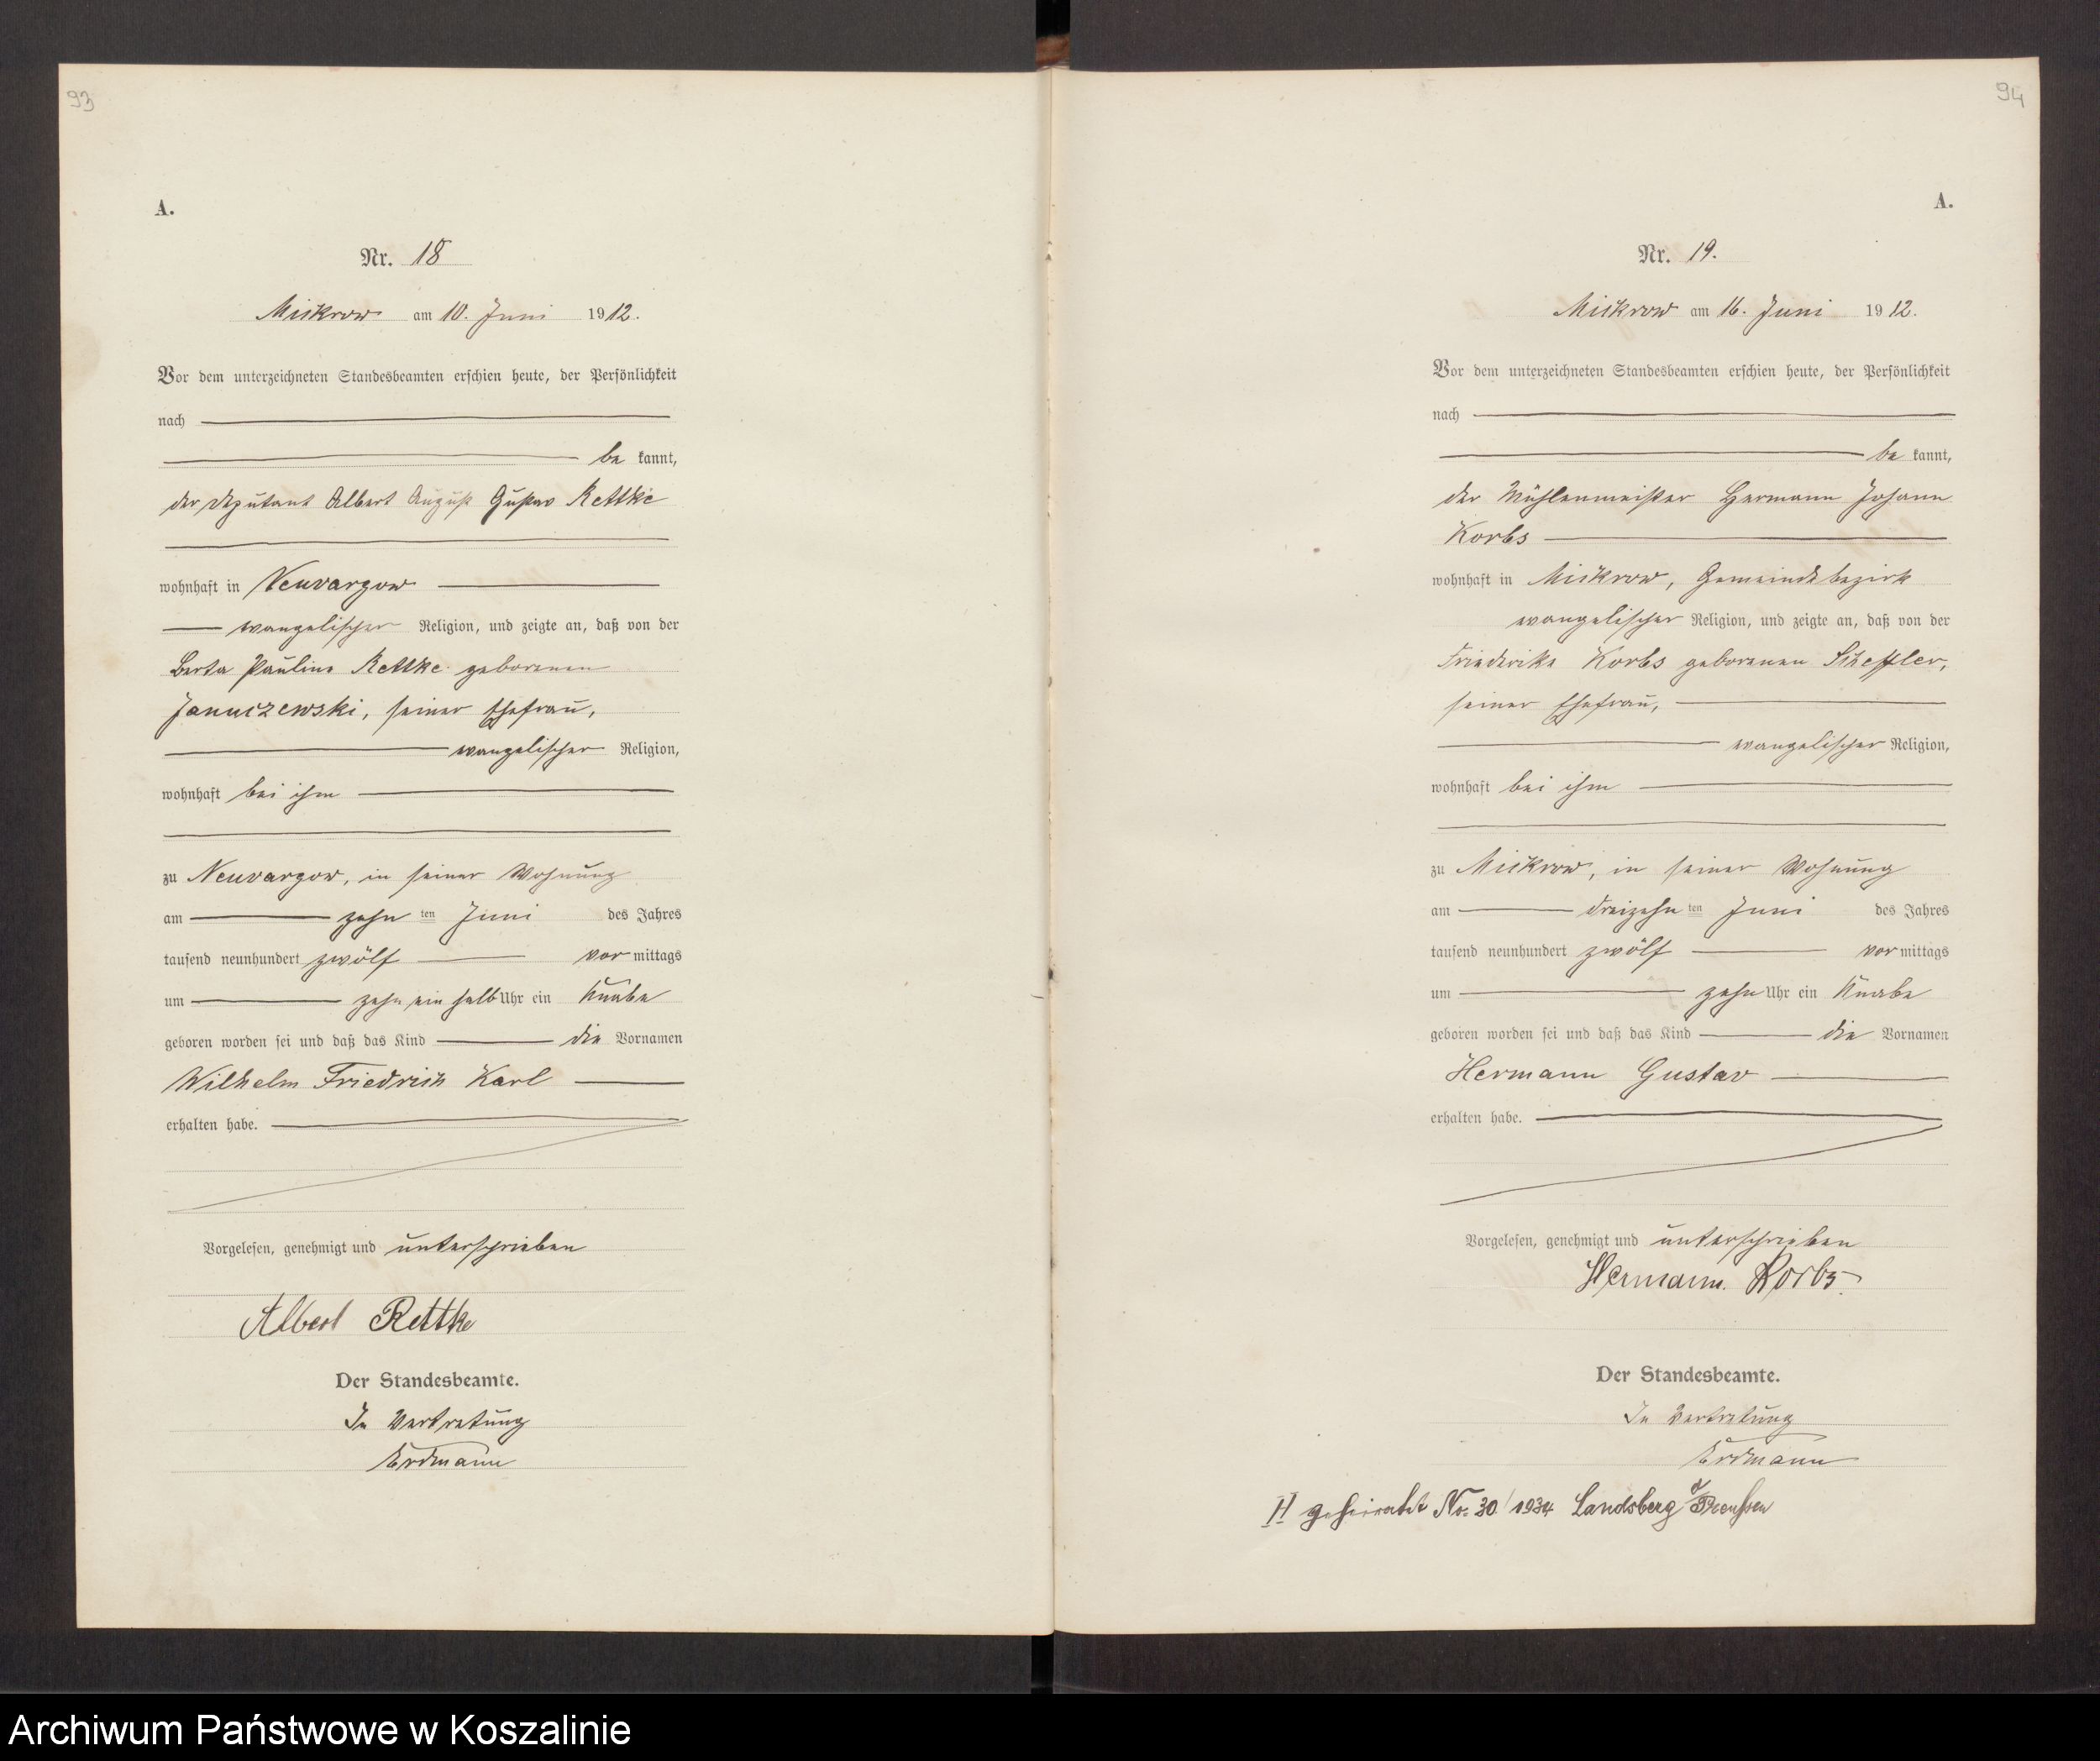 93
A.
Nr. 18
Mickrow am 10. Juni 1912.
Vor dem unterzeichneten Standesbeamten erschien heute, der Persönlichkeit
nach
be kannt,
der Deputant Albert August Gustav Rettke
wohnhaft in Neuvargow
evangelischer Religion, und zeigte an, daß von der
Berta Pauline Rettke geborenen
Januczewski, seiner Ehefrau,
evangelischer Religion,
wohnhaft bei ihm
zu Neuvargow, in seiner Wohnung
am zehn ten Juni des Jahres
tausend neunhundert zwölf vor mittags
um zehn ein halb Uhr ein Knabe
geboren worden sei und daß das Kind die Vornamen
Wilhelm Friedrich Karl
erhalten habe.
Vorgelesen, genehmigt und unterschrieben
Albert Rettke
Der Standesbeamte.
In Vertretung
Erdmann
94
A.
Nr. 19.
Mickrow am 16. Juni 1912.
Vor dem unterzeichneten Standesbeamten erschien heute, der Persönlichkeit
nach
be kannt,
der Mühlenmeister Hermann Johann
Korbs
wohnhaft in Mickrow, Gemeindebezirk
evangelischer Religion, und zeigte an, daß von der
Friederike Korbs geborenen Scheffler,
seiner Ehefrau,
evangelischer Religion,
wohnhaft bei ihm
zu Mickrow, in seiner Wohnung
am dreizehn ten Juni des Jahres
tausend neunhundert zwölf vor mittags
um zehn Uhr ein Knabe
geboren worden sei und daß das Kind die Vornamen
Hermann Gustav
erhalten habe.
Vorgelesen, genehmigt und unterschrieben
Hermann Korbs.
Der Standesbeamte.
In Vertretung
Erdmann
H geheiratet No. 30/1934 Landsberg /Preußen
Archiwum Państwowe w Koszalinie